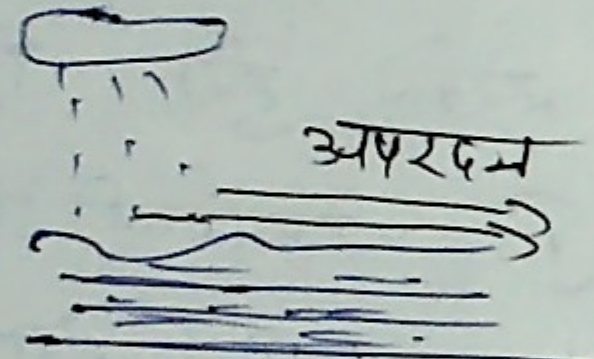 अपरदन